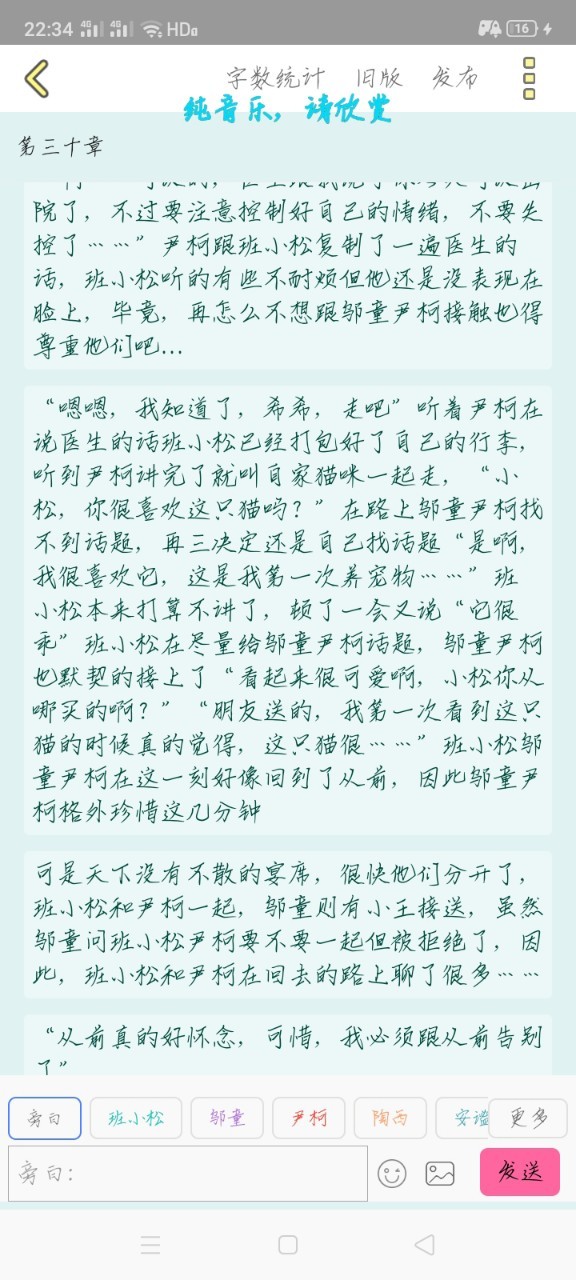 22:34
4G 4G HD
16
字数统计 旧版 发布
纯音乐，请欣赏
第三十章
院了，不过要注意控制好自己的情绪，不要失
控了……”尹柯跟班小松复制了一遍医生的
话，班小松听的有些不耐烦但他还是没表现在
脸上，毕竟，再怎么不想跟邬童尹柯接触也得
尊重他们吧...
“嗯嗯，我知道了，希希，走吧”听着尹柯在
说医生的话班小松已经打包好了自己的行李，
听到尹柯讲完了就叫自家猫咪一起走，“小
松，你很喜欢这只猫吗？”在路上邬童尹柯找
不到话题，再三决定还是自己找话题“是啊，
我很喜欢它，这是我第一次养宠物……”班
小松本来打算不讲了，顿了一会又说“它很
乖”班小松在尽量给邬童尹柯话题，邬童尹柯
也默契的接上了“看起来很可爱啊，小松你从
哪买的啊？”“朋友送的，我第一次看到这只
猫的时候真的觉得，这只猫很……”班小松邬
童尹柯在这一刻好像回到了从前，因此邬童尹
柯格外珍惜这几分钟
可是天下没有不散的宴席，很快他们分开了，
班小松和尹柯一起，邬童则有小王接送，虽然
邬童问班小松尹柯要不要一起但被拒绝了，因
此，班小松和尹柯在回去的路上聊了很多……
“从前真的好怀念，可惜，我必须跟从前告别
了”
旁白 班小松 邬童 尹柯 陶西 安谧 更多
旁白： 发送